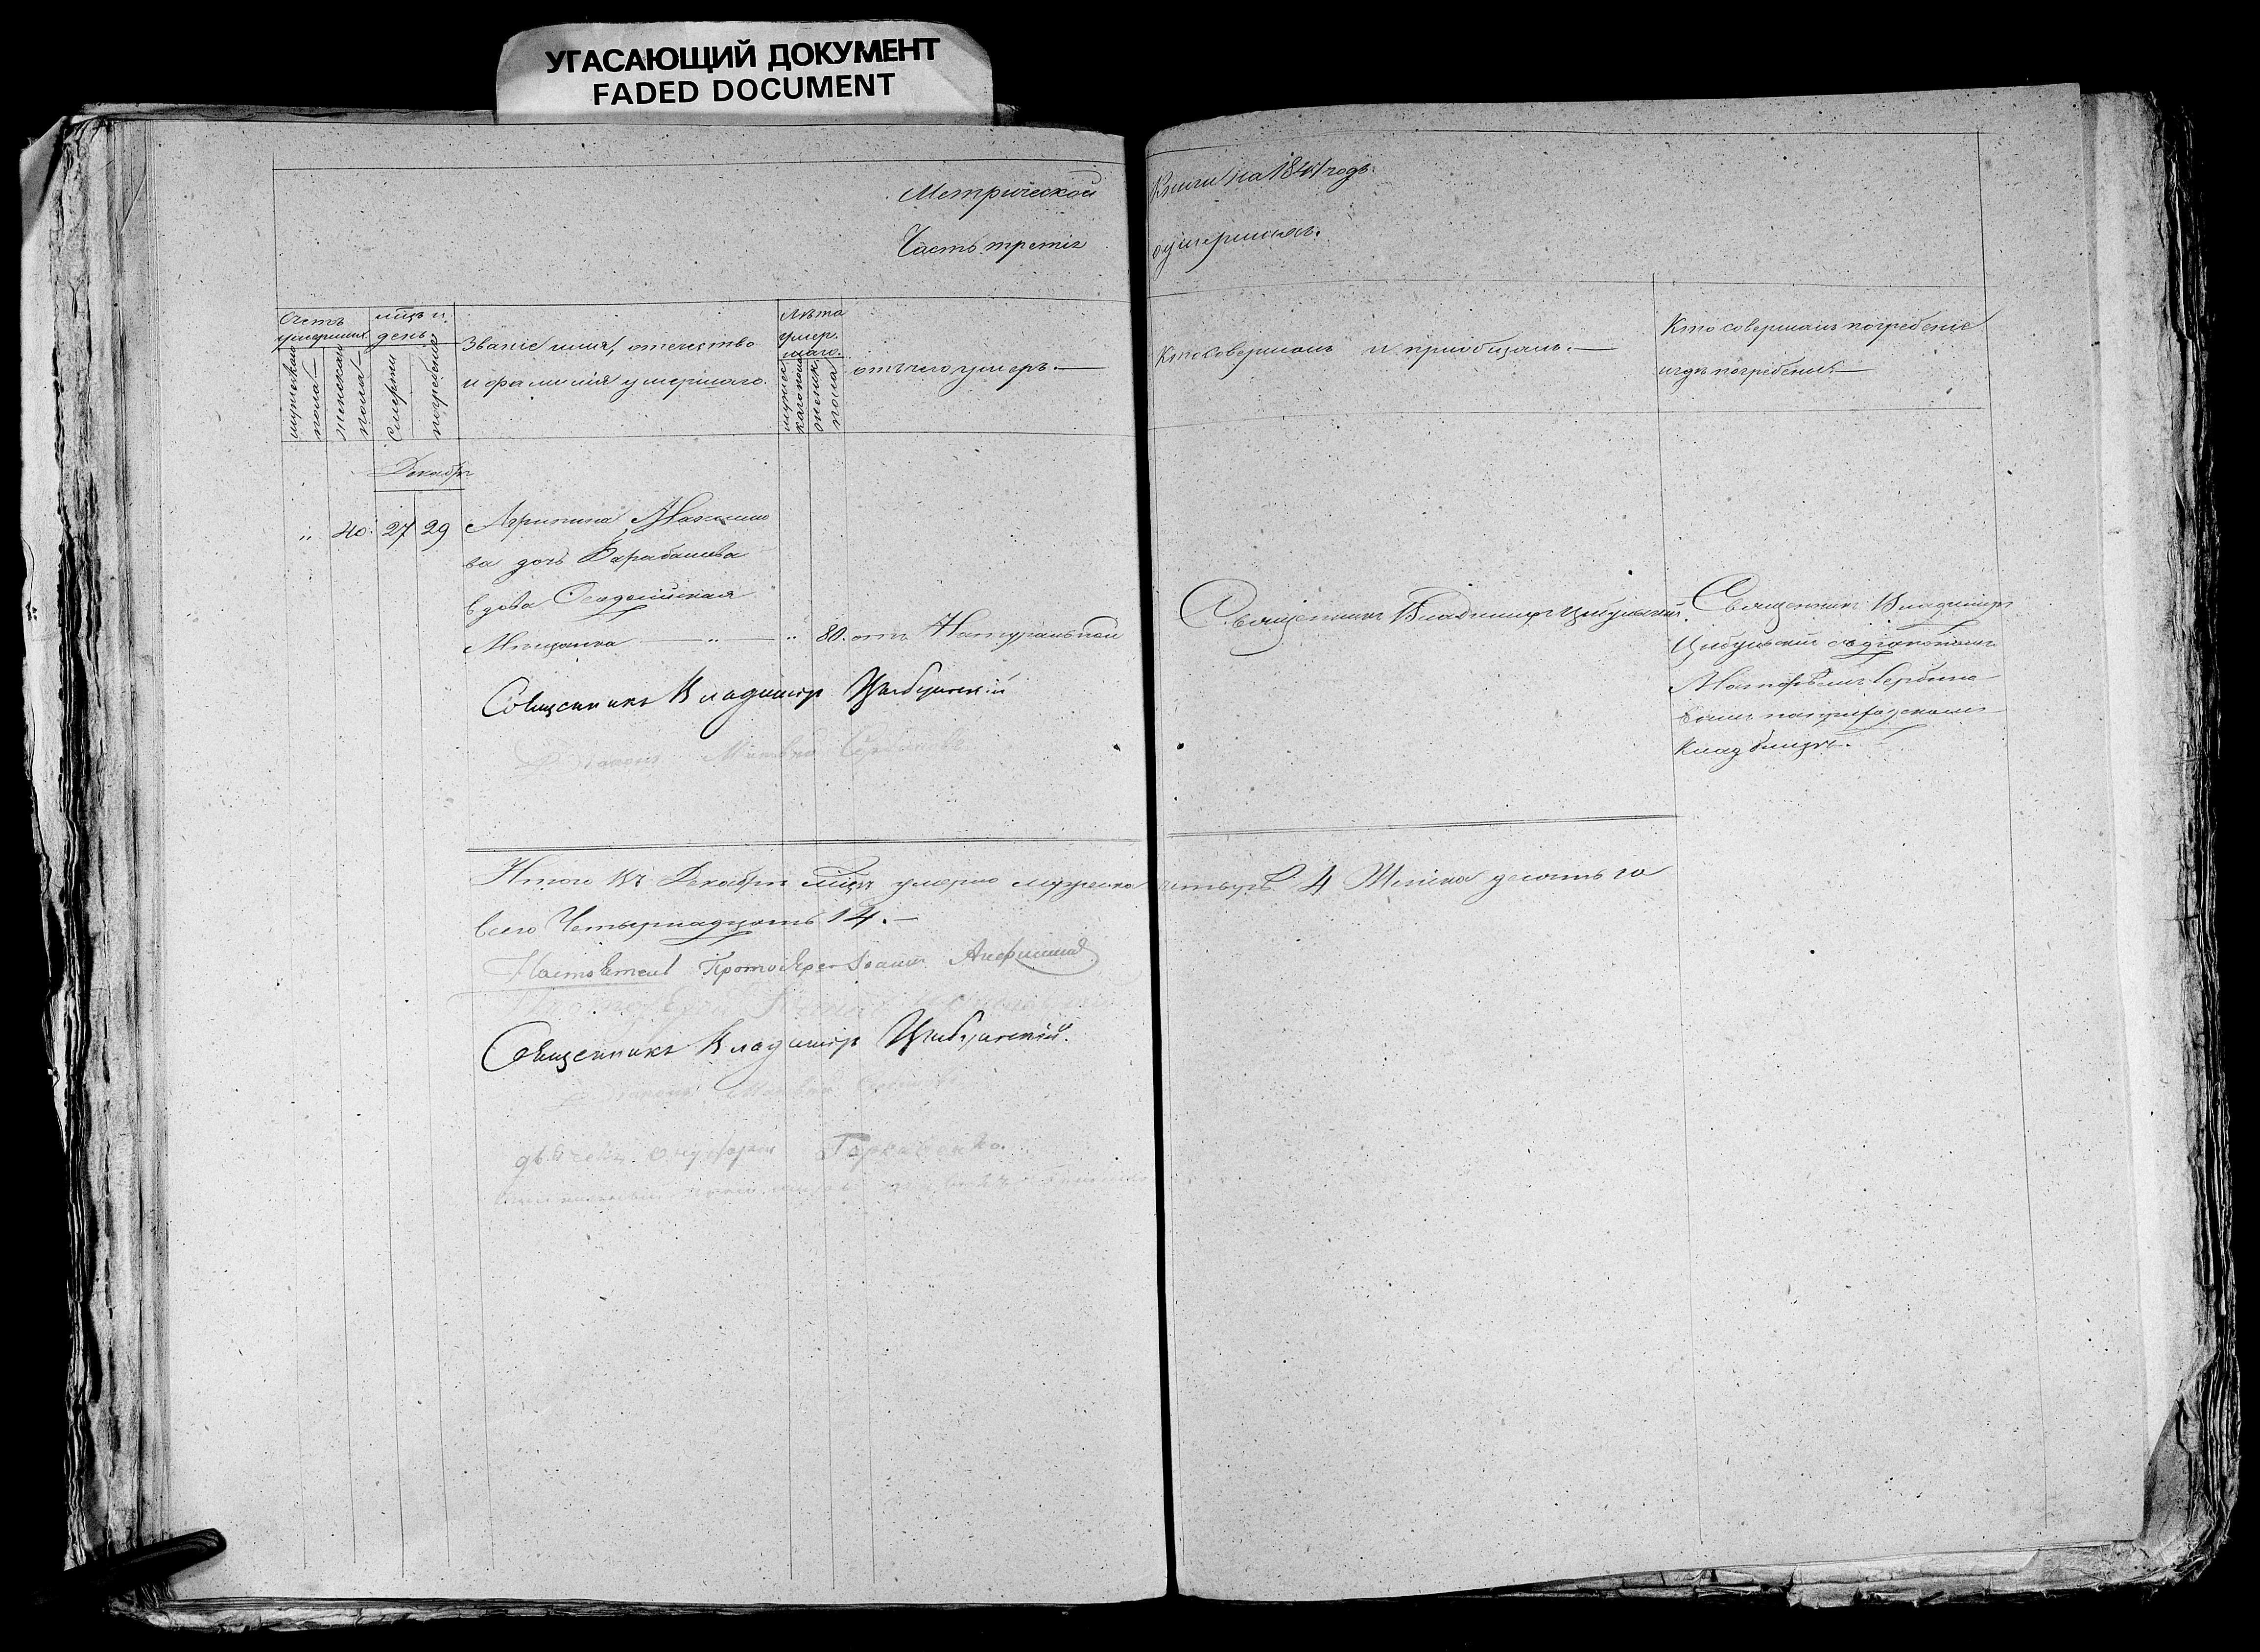 УГАСАЮЩИЙ ДОКУМЕНТ
FADED DOCUMENT
Метрической
Часть третія
Книги на 1841 годъ.
о умершихъ.
Счетъ умершихъ
мужескаго пола
женскаго пола
мѣц и день
смерти
погребенія
Званіе имя, отечество
и фамилія умершаго.
Лѣта умер шаго.
мужескаго пола
женск пола
отъ чего умеръ.—
Кто совершалъ и пріобщалъ.—
Кто совершалъ погребеніе
и гдѣ погребены.—
Декабрь
" 40. 27 29 Агрипина Максимо
ва дочь Карабашева
вдова Осадошская
Мѣщанка — " — " 80. отъ Натуральной
Священникъ Владимиръ Цибульскій.
Священникъ Владимиръ
Цибульскій съ діакономъ
Матфѣемъ Сербино
вымъ на градскомъ
кладбищѣ.
Священникъ Владимир Цыбульскій
Діаконъ Матвѣй Сербиновъ
Итого въ Декабрѣ мѣцѣ умерло мужеска четыре 4 Женска десять 10
всего Четырнадцать 14.—
Настоятель Протоіерей Іоаннъ
Священникъ Владимир Цыбульскій.
Діаконъ Матвѣй